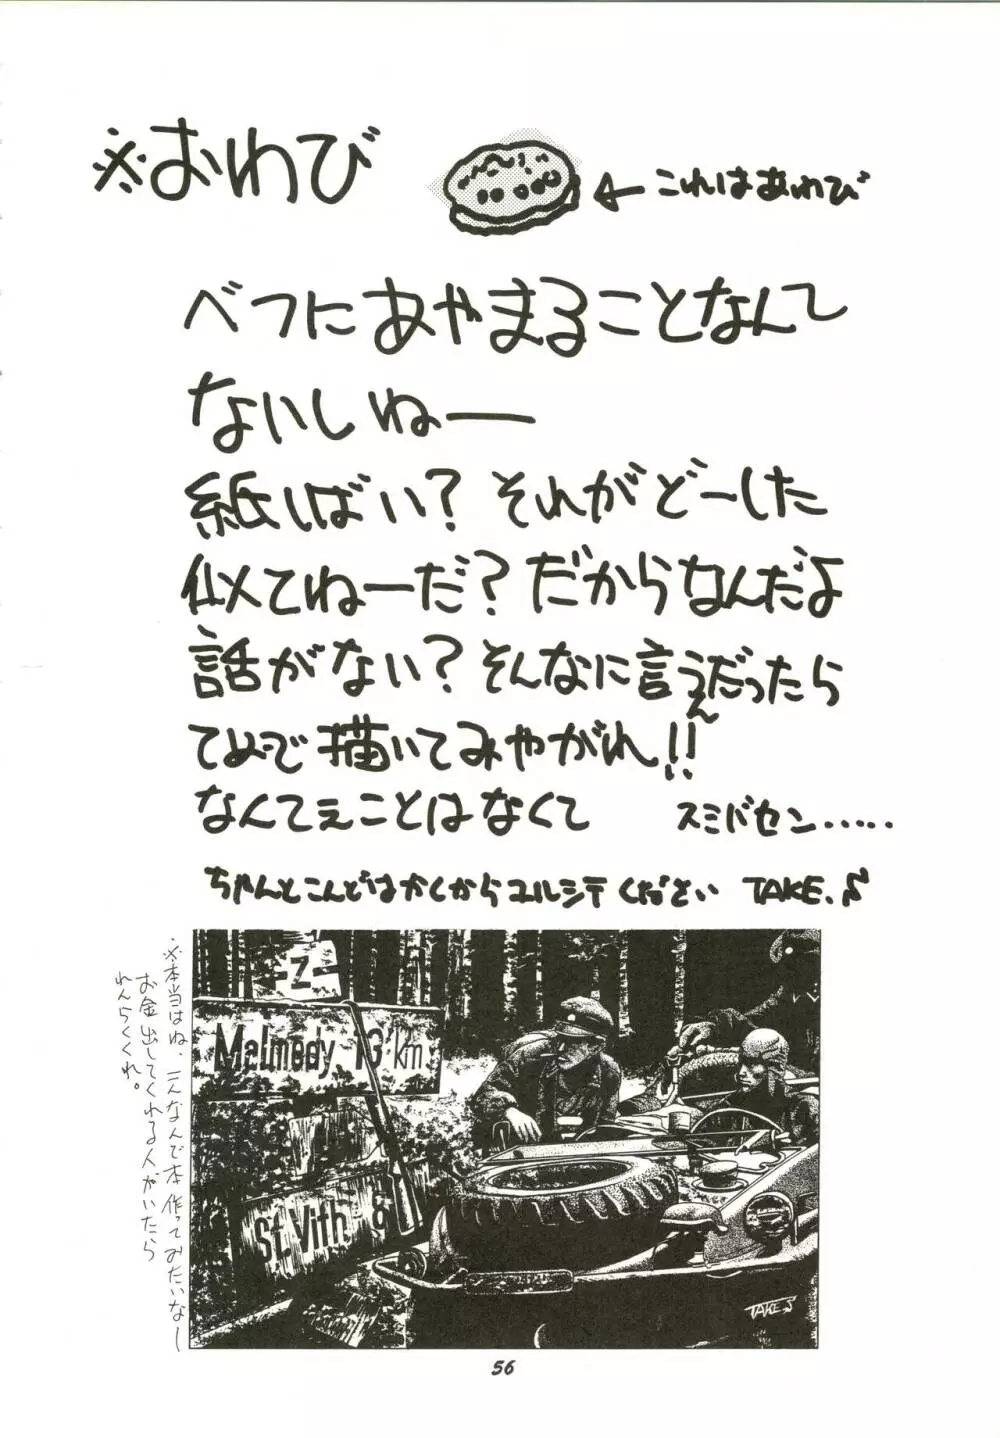 ※おわび
←これはあわび
べつにあやまることなんて
ないしねー
紙しばい？それがどーした
似てねーだ？だからなんだよ
話がない？そんなに言うんだったら
てめーで描いてみやがれ!!
なんてえことはなくて　スミバセン……
ちゃんとこんどはかくからユルシテください TAKE.S
※本当はね、こんなんで本作ってみたいなー
お金出してくれる人がいたら
れんらくくれ。
Z
Malmedy 13 km
St.Vith 9
TAKE.S
56